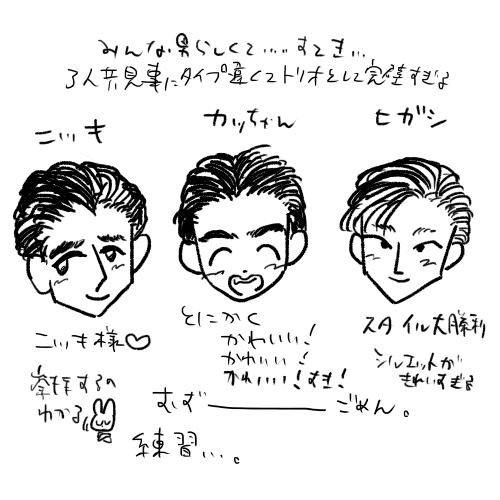 みんな男らしくて....すてき...
3人共見事にタイプ違くてトリオとして完璧すぎる
ニッキ
カッちゃん
ヒガシ
ニッキ様♡
挙手するの
わかる
とにかく
かわいい!
かわいい!
かわいい!むき!
スタイル大勝利
シルエットが
きれいすぎる
むず―――ごめん。
練習...。